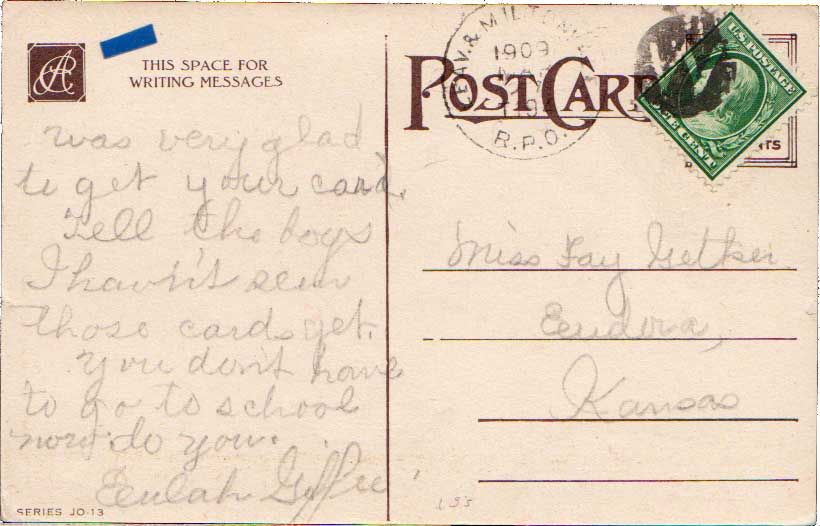 THIS SPACE FOR
WRITING MESSAGES
POST CARD
& MILTON
1909
R.P.O.
U.S. POSTAGE
ONE CENT
was very glad
to get your card.
Tell the boys
I havn't seen
those cards yet.
You don't have
to go to school
now do you.
Eulah
Miss Fay Getker
Eudora,
Kansas
SERIES JO-13